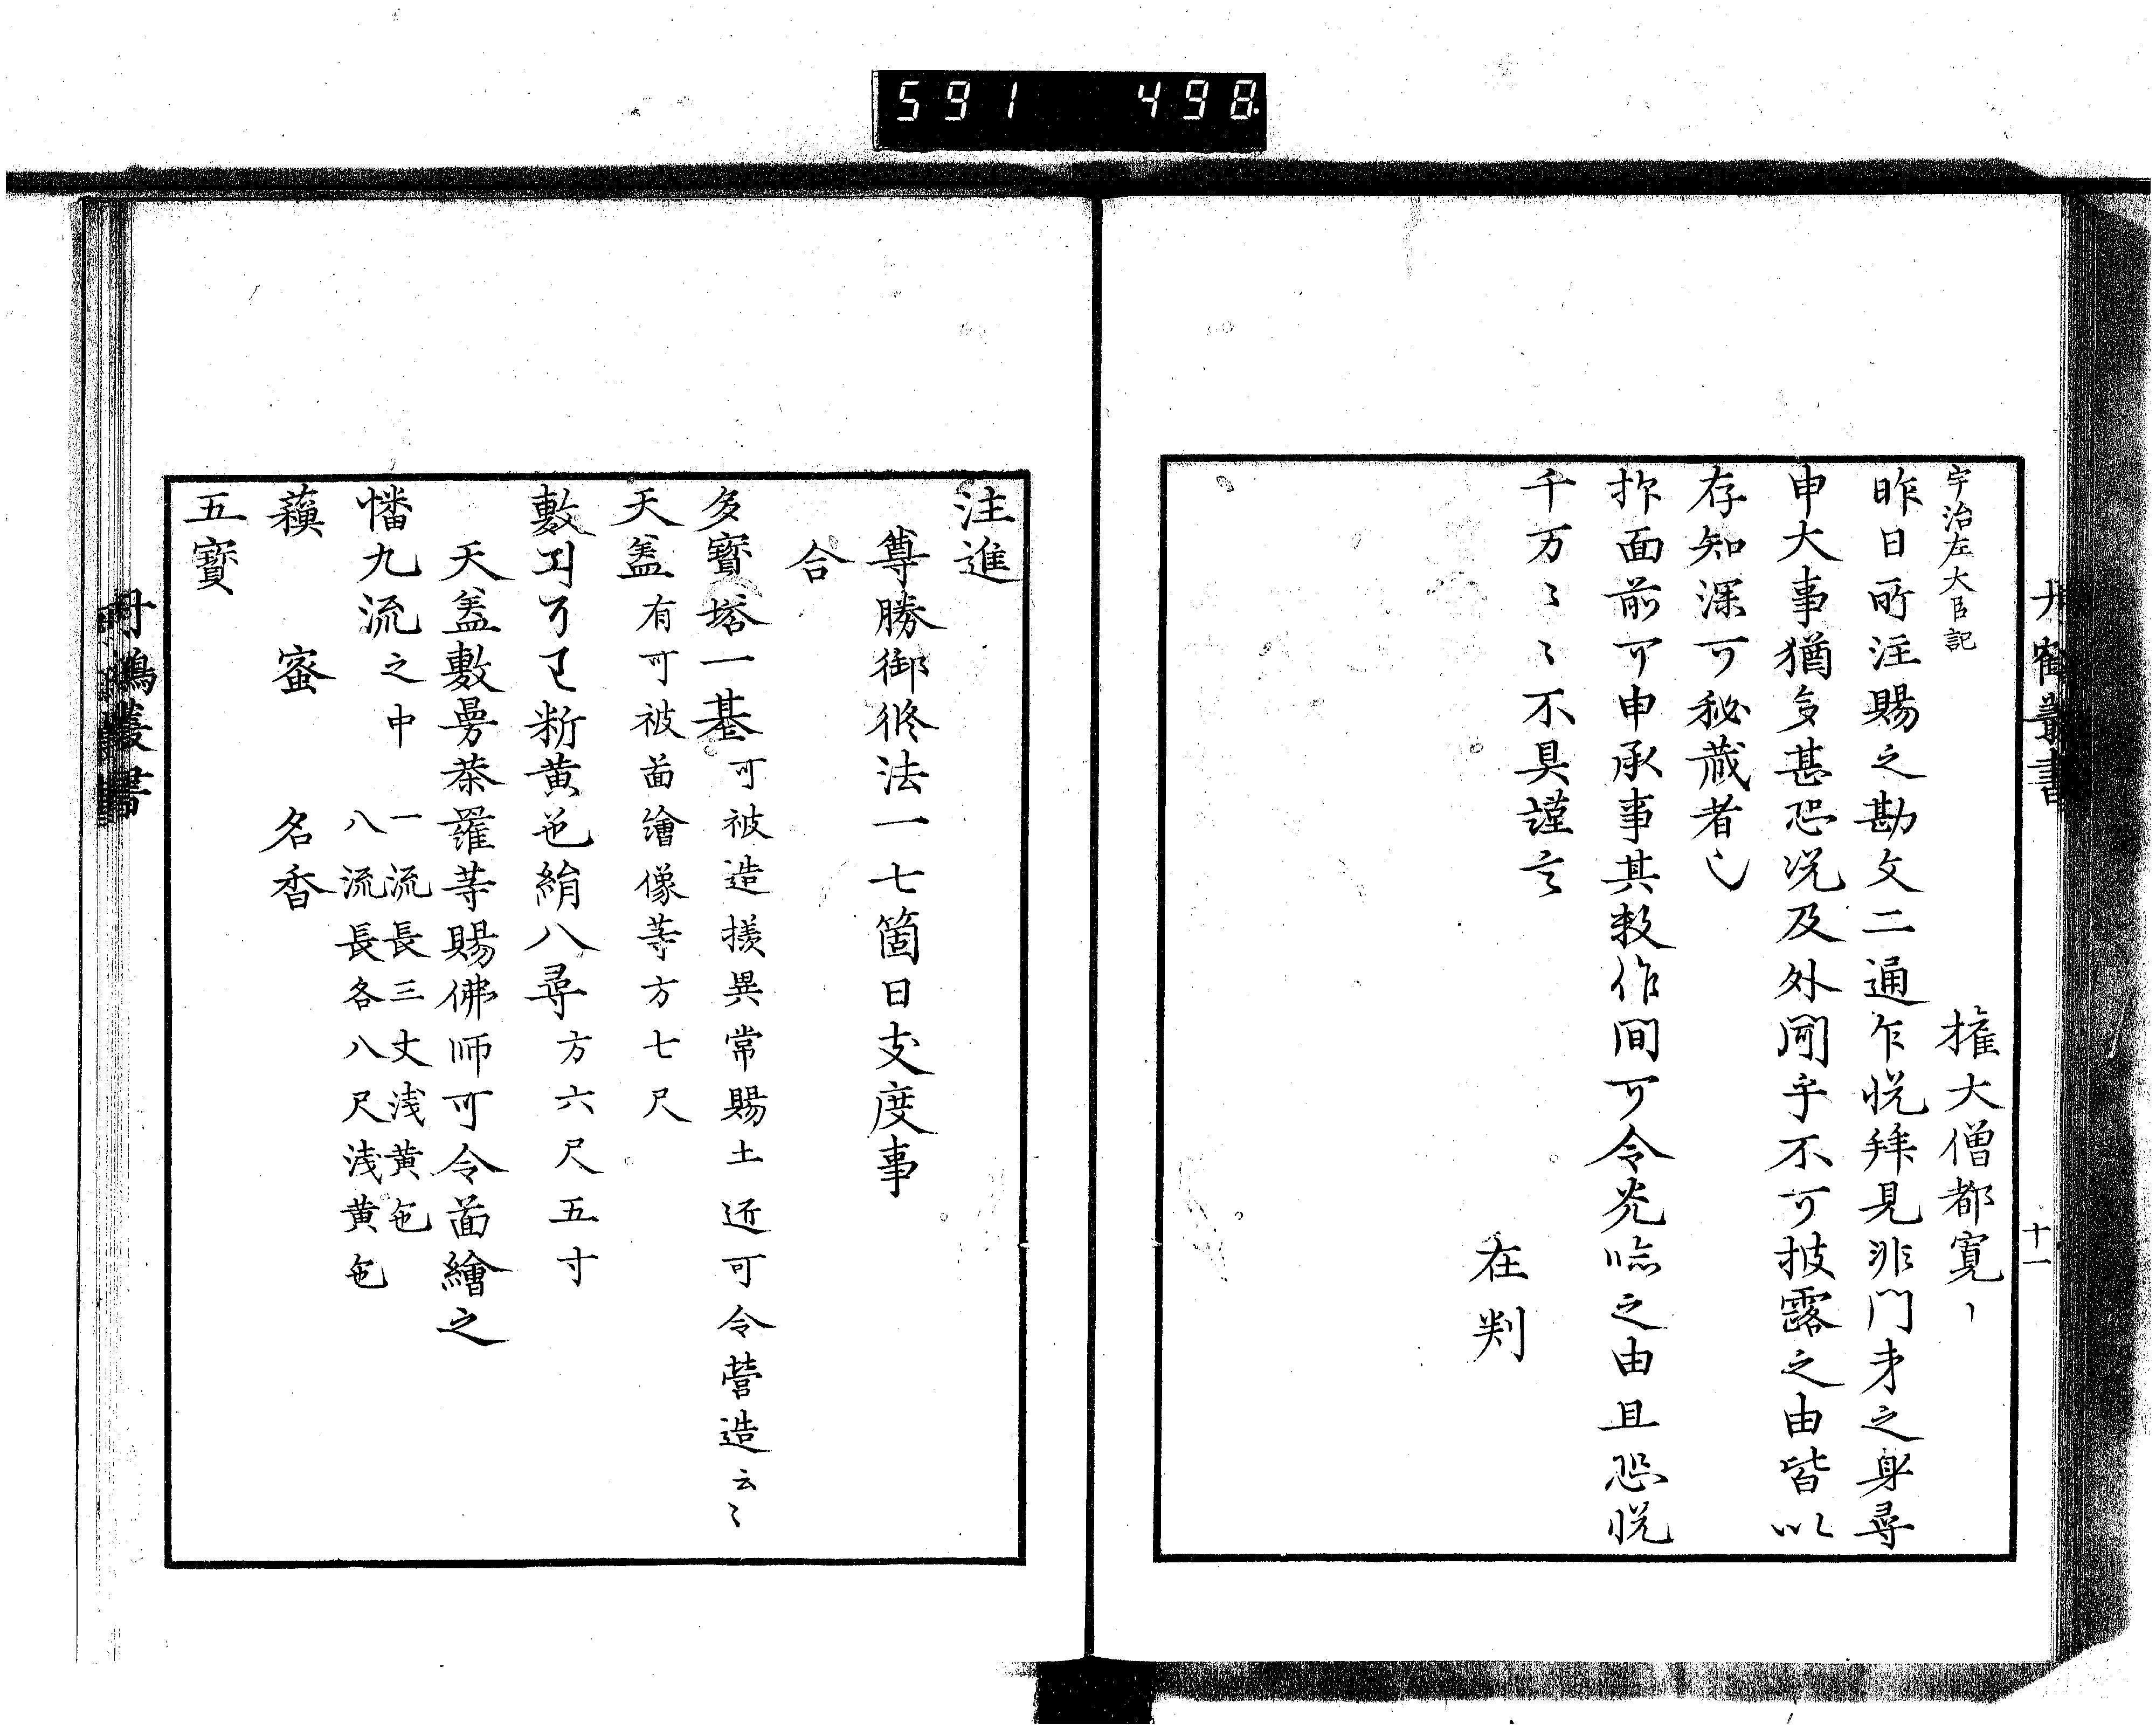 591 498
丹鶴叢書
十一
權大僧都寛〻
宇治左大臣記
昨日所注賜之勘文二通乍恱拜見非門弟之身尋
申大事猶多甚恐况及外聞乎不可披露之由皆以
存知深可秘蔵者也
抑面前可申承事其数作間可令光臨之由且恐恱
千万〻〻不具謹言
在判
注進
尊勝御修法一七箇日支度事
合
多寳塔一基可被造様異常賜土近可令營造云〻
天盖有可被畫繪像等方七尺
敷曼荼羅料黄色絹八尋方六尺五寸
天盖敷曼荼羅等賜佛師可令畫繪之
幡九流之中
一流長三丈浅黄色
八流長各八尺浅黄色
蘓 蜜 名香
五寳
丹鶴叢書